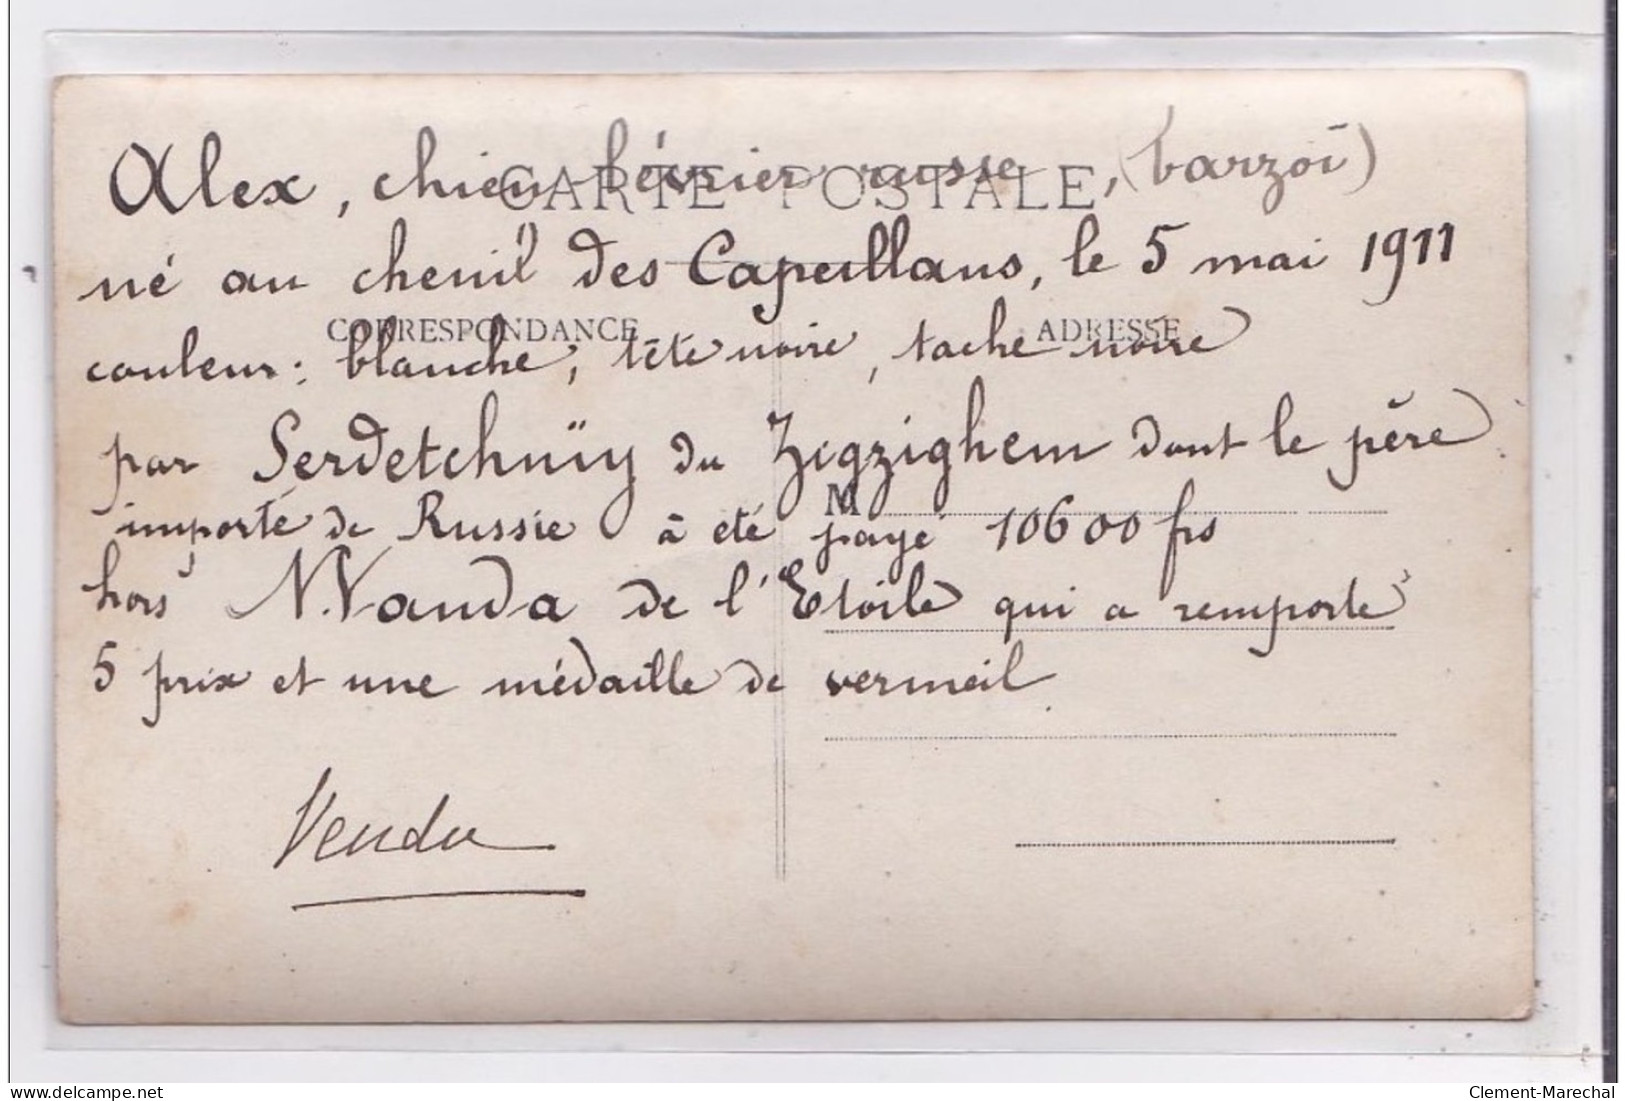 CARTE POSTALE
Alex, chien lévrier russe, (barzoï)
né au chenil des Capeullans, le 5 mai 1911
CORRESPONDANCE ADRESSE
couleur: blanche, tête noire, tache noire
par Serdetchnïy du Zigzighem dont le père
M
importé de Russie à été payé 10600 frs
hors N. Vanda de l'Etoile qui a remporté
5 prix et une médaille de vermeil
Vendu
delcampe.net
Clement-Marechal